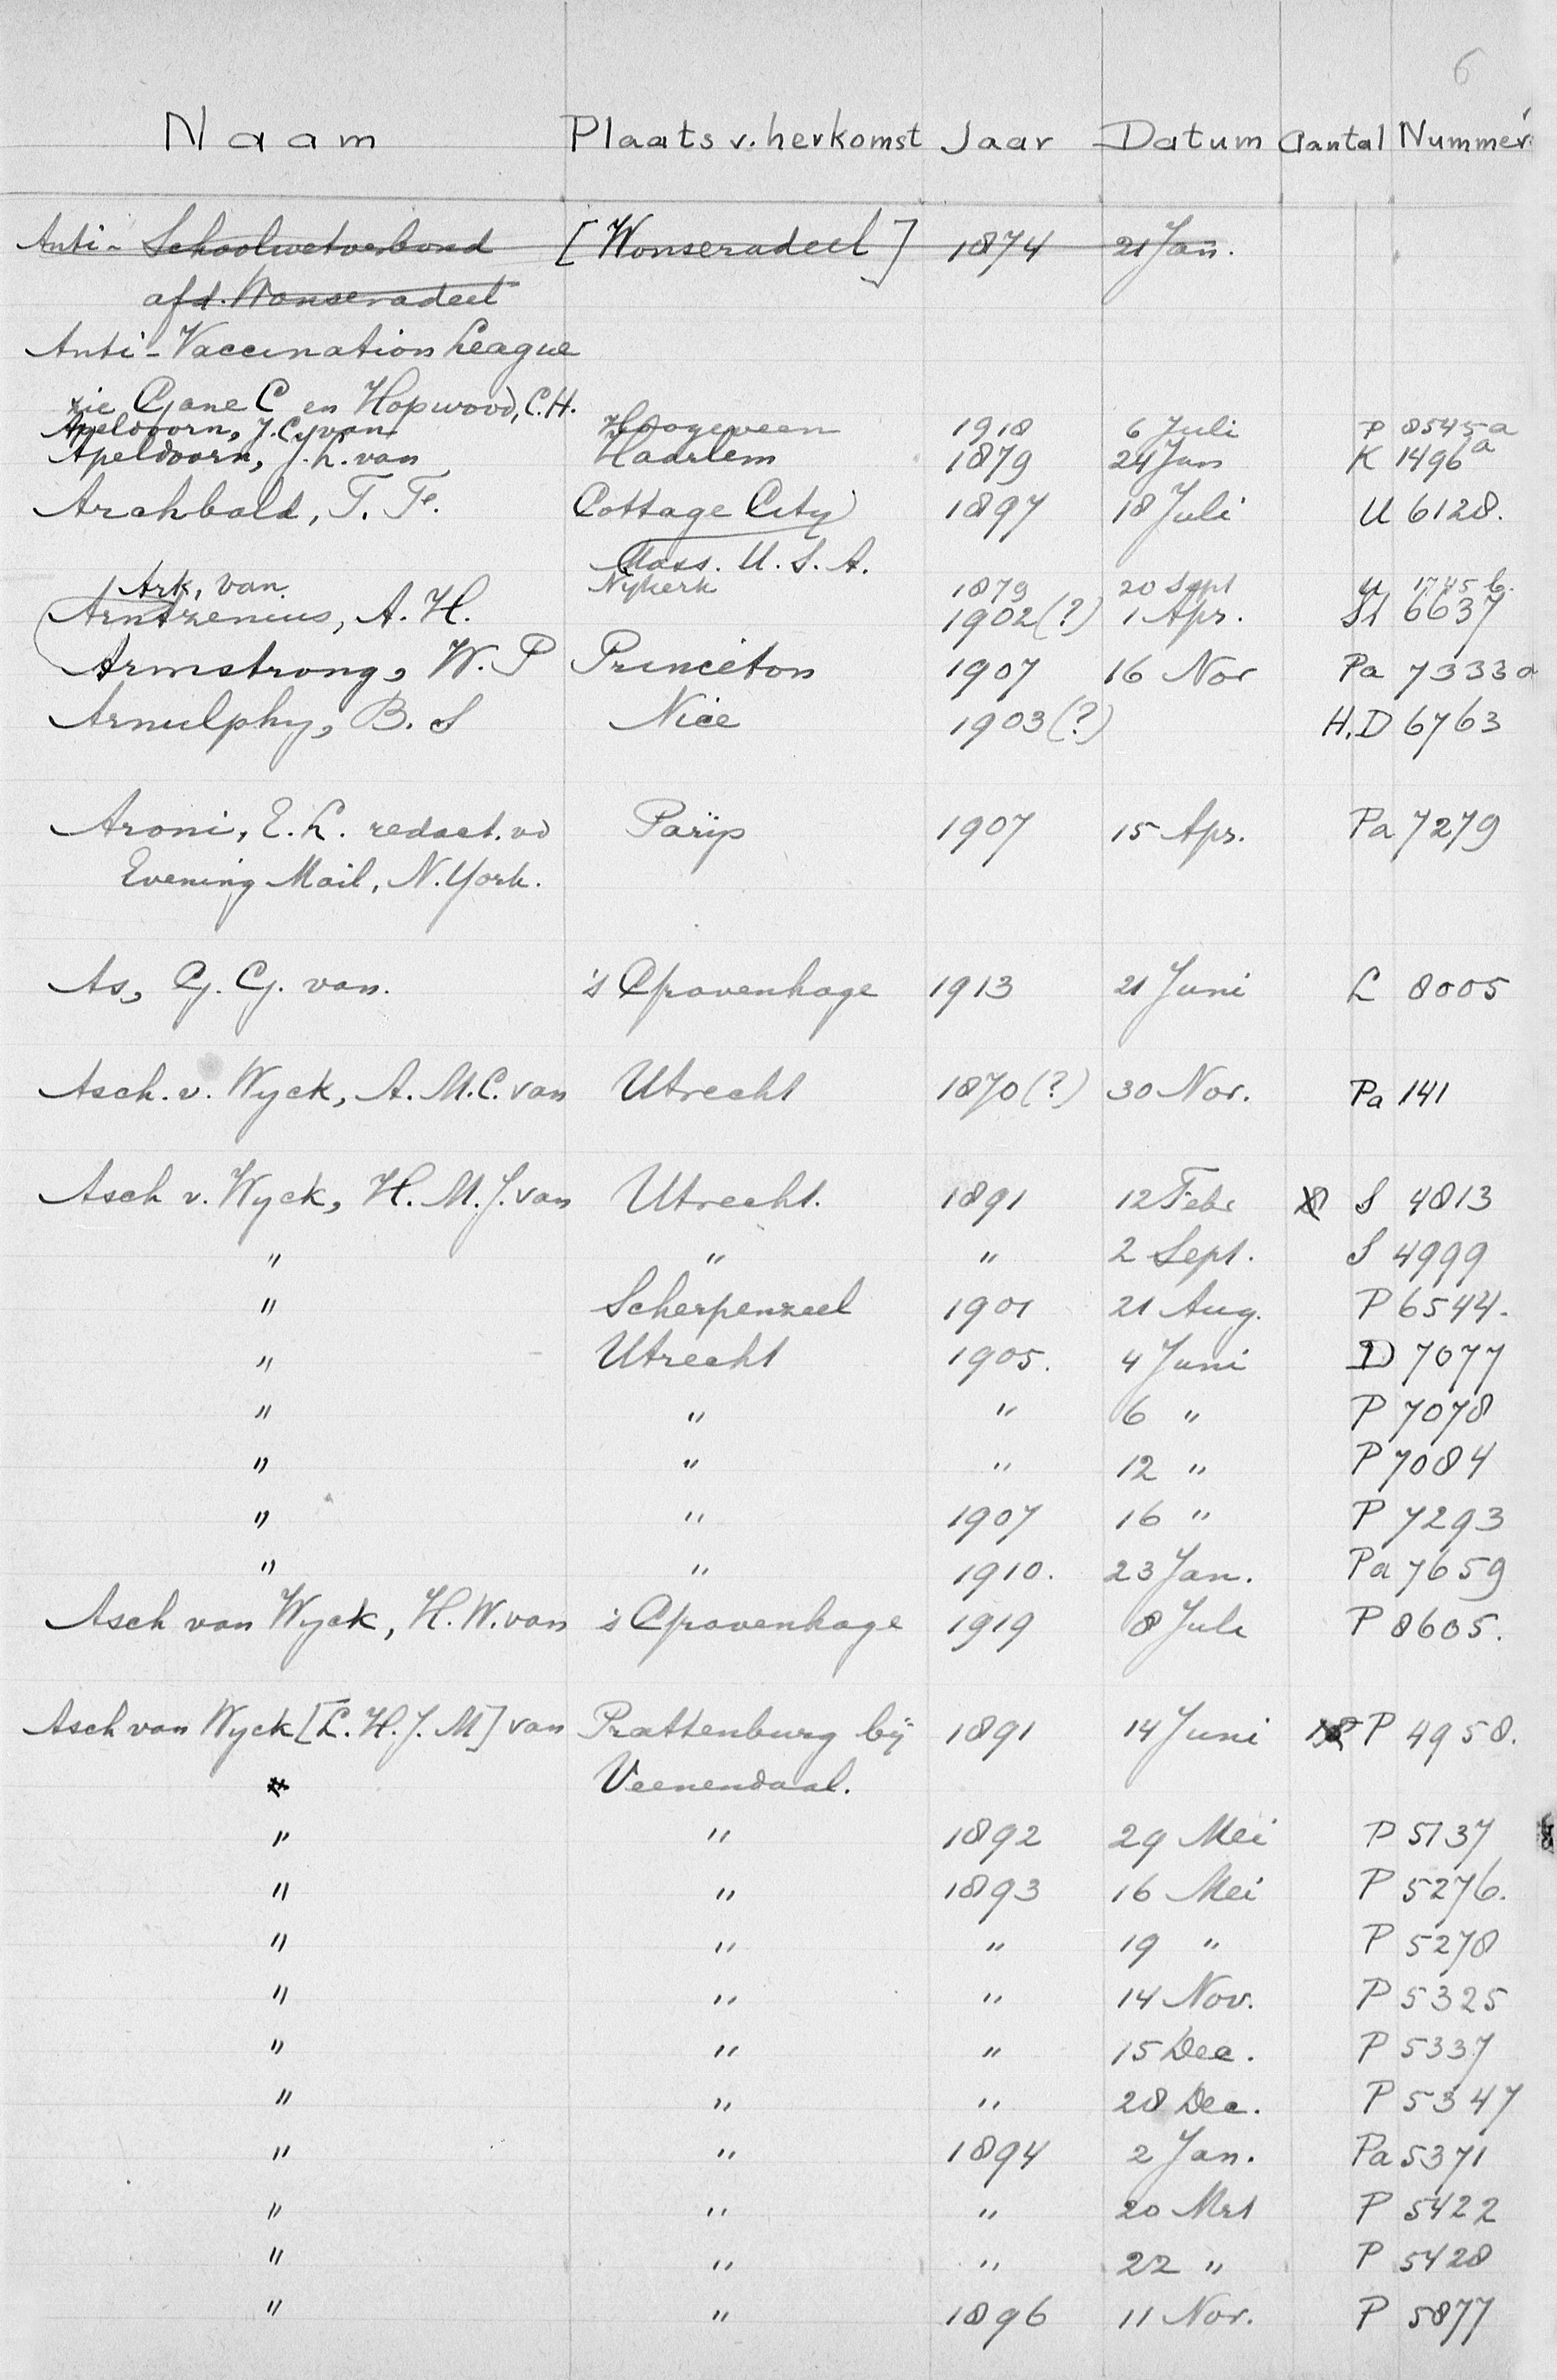 6
Naam Plaats v. herkomst Jaar Datum Aantal Nummer
Anti- Schoolwetverbond [Wonseradeel] 1874 21 Jan.
afd. Wonseradeel
Anti-Vaccination League
zie Gane C en Hopwood, C.H.
Apeldoorn, J. C. van Hoogeveen 1918 6 Juli P 8545a
Apeldoorn, J. L. van Haarlem 1879 24 Jan K 1496a
Archbald, T. F. Cottage City 1897 18 Juli U 6128.
Mass. U. S. A.
Ark, van. Nykerk 1879 20 Sept U 1745 b.
Arntzenius, A. H. 1902(?) 1 Apr. St 6637
Armstrong, W. P Princeton 1907 16 Nov Pa 7333a
Arnulphy, B. S Nice 1903(?) H.D 6763
Aroni, E. L. redact. vd Parijs 1907 15 Apr. Pa 7279
Evening Mail, N. York.
As, G. G. van. 's Gravenhage 1913 21 Juni L 8005
Asch. v. Wyck, A. M. C. van Utrecht 1870(?) 30 Nov. Pa 141
Asch v. Wyck, H. M. J. van Utrecht. 1891 12 Febr 8 S 4813
" " " 2 Sept. S 4999
" Scherpenzeel 1901 21 Aug. P 6544.
" Utrecht 1905. 4 Juni D 7077
" " " 6 " P 7078
" " " 12 " P 7084
" " 1907 16 " P 7293
" " 1910. 23 Jan. Pa 7659
Asch van Wyck, H. W. van 's Gravenhage 1919 8 Juli P 8605.
Asch van Wyck [L. H. J. M] van Prattenburg bij 1891 14 Juni P 4958.
Veenendaal.
" " 1892 29 Mei P 5137
" " 1893 16 Mei P 5276.
" " " 19 " P 5278
" " " 14 Nov. P 5325
" " " 15 Dec. P 5337
" " " 28 Dec. P 5347
" " 1894 2 Jan. Pa 5371
" " " 20 Mrt P 5422
" " " 22 " P 5428
" " 1896 11 Nov. P 5877